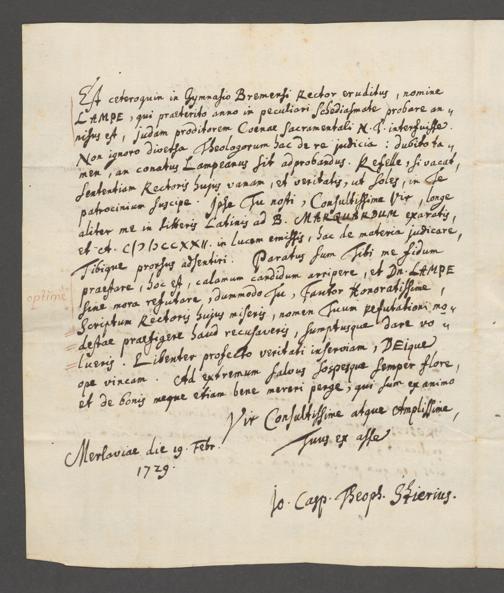 Est ceteroquin in Gymnasio Bremensi Rector eruditus, nomine
LAMPE, qui praeterito anno in peculiari Schediasmate probare an„
nisus est, Judam proditorem Coenae Sacramentali N.T. interfuisse.
Non ignoro diversa Theologorum hac de re judicia: dubito ta„
men, an conatus Lampeanus sit adprobandus. Refelle, si vacat,
sententiam Rectoris hujus vanam, et veritatis, ut soles, in Te
patrocinium suscipe. Ipse Tu nosti, Consultissime Vir, longe
aliter me in litteris Latinis ad B. MARQUARDUM exaratis,
et ct. CIƆIƆCCXXII. in lucem emissis, hac de materia judicare,
Tibique prorsus adsentiri. Paratus sum Tibi me fidum
praestare, hoc est, calamum candidum arripere, et Dn. LAMPE
optime
sine mora refutare, dummodo Tu, Fautor Honoratissime,
scriptum Rectoris hujus miseris, nomen Tuum refutationi mo„
destae praefigere haud recusaveris, sumptusque dare vo„
lueris. Libenter profecto veritati inserviam, DEique
ope vincam. Ad extremum salvus sospesque semper flore,
et de bonis meque etiam bene mereri perge, qui sum ex animo
Vir Consultissime atque Amplissime,
Tuus ex asse
Merlaviae die 19. Febr.
1729.
Jo. Casp. Theoph.